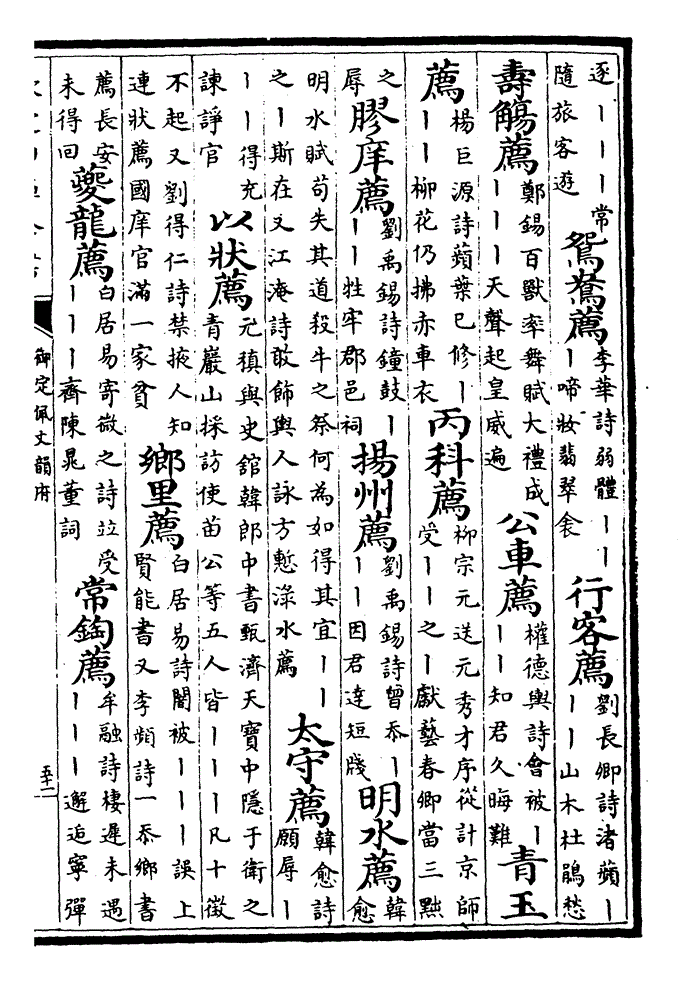 逐｜｜｜常
隨旅客遊
鴛鴦薦
李華詩弱體｜｜
｜啼妝翡翠衾
行客薦
劉長卿詩渚蘋｜
｜｜山木杜鵑愁
壽觴薦
鄭錫百獸率舞賦大禮成
｜｜｜天聲起皇威遍
公車薦
權德輿詩會被｜
｜｜知君久晦難
青玉
薦
楊巨源詩蘋葉已修｜
｜｜柳花仍拂赤車衣
丙科薦
柳宗元送元秀才序從計京師
受｜｜之｜獻藝春卿當三黜
之
辱
膠庠薦
劉禹錫詩鐘鼓｜
｜｜牲牢郡邑祠
揚州薦
劉禹錫詩曾忝｜
｜｜因君達短牋
明水薦
韓
愈
明水賦苟失其道殺牛之祭何為如得其宜｜｜
之｜斯在又江淹詩敢飾輿人詠方慙淥水薦
太守薦
韓愈詩
願辱｜
｜｜得充
諫諍官
以狀薦
元稹與史館韓郎中書甄濟天寶中隱于衛之
青巖山採訪使苗公等五人皆｜｜｜凡十徵
不起又劉得仁詩禁掖人知
連狀薦國庠官滿一家貧
鄉里薦
白居易詩闇被｜｜｜誤上
賢能書又李頻詩一忝鄉書
薦長安
未得回
夔龍薦
白居易寄微之詩竝受
｜｜｜齊陳晁董詞
常鋾薦
牟融詩棲遲未遇
｜｜｜邂逅寧彈
御定佩文韻府